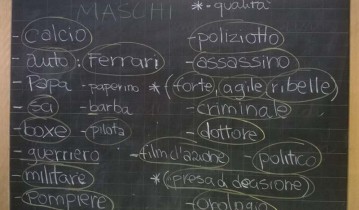 MASCHI
* = qualità
- calcio
- auto: Ferrari
- Papa - paperino
- sci - barba
- boxe - pilota
- guerriero
- militare
- pompiere
- poliziotto
- assassino
* (forte, agile, ribelle)
- criminale
- dottore
- film d'azione - politico
* (presa di decisione)